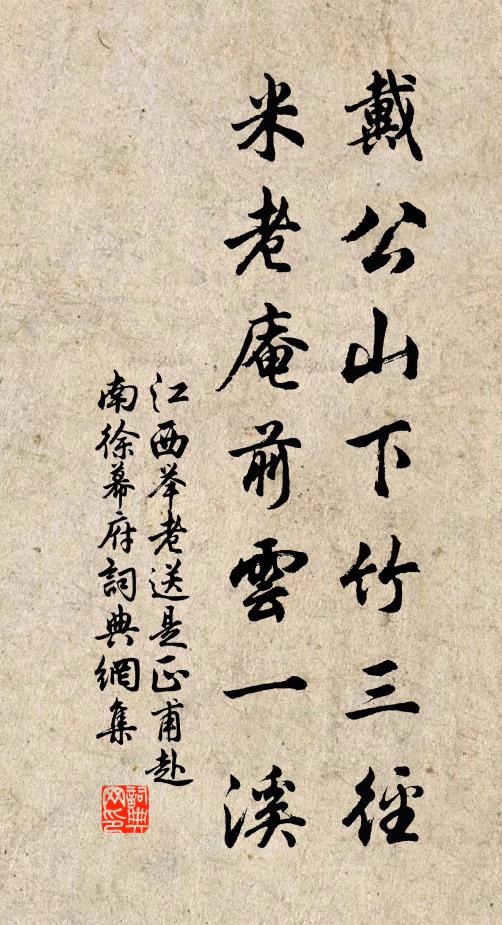 戴公山下竹三徑
米老庵前雲一溪
江西举老送是正甫赴
南徐幕府詞典網集
詞典网印